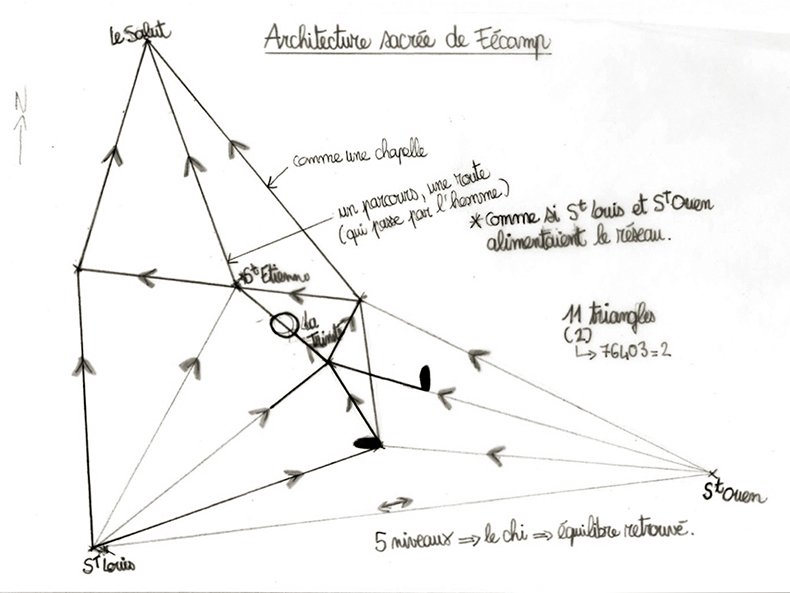 Le Salut
Architecture sacrée de Fécamp
N
comme une chapelle
un parcours, une route
(qui passe par l'homme)
* comme si St Louis et St Ouen
alimentaient le réseau.
St Etienne
La
Trinité
11 triangles
(2)
↳ 76403=2
St Ouen
5 niveaux ⇒ le chi ⇒ équilibre retrouvé.
St Louis